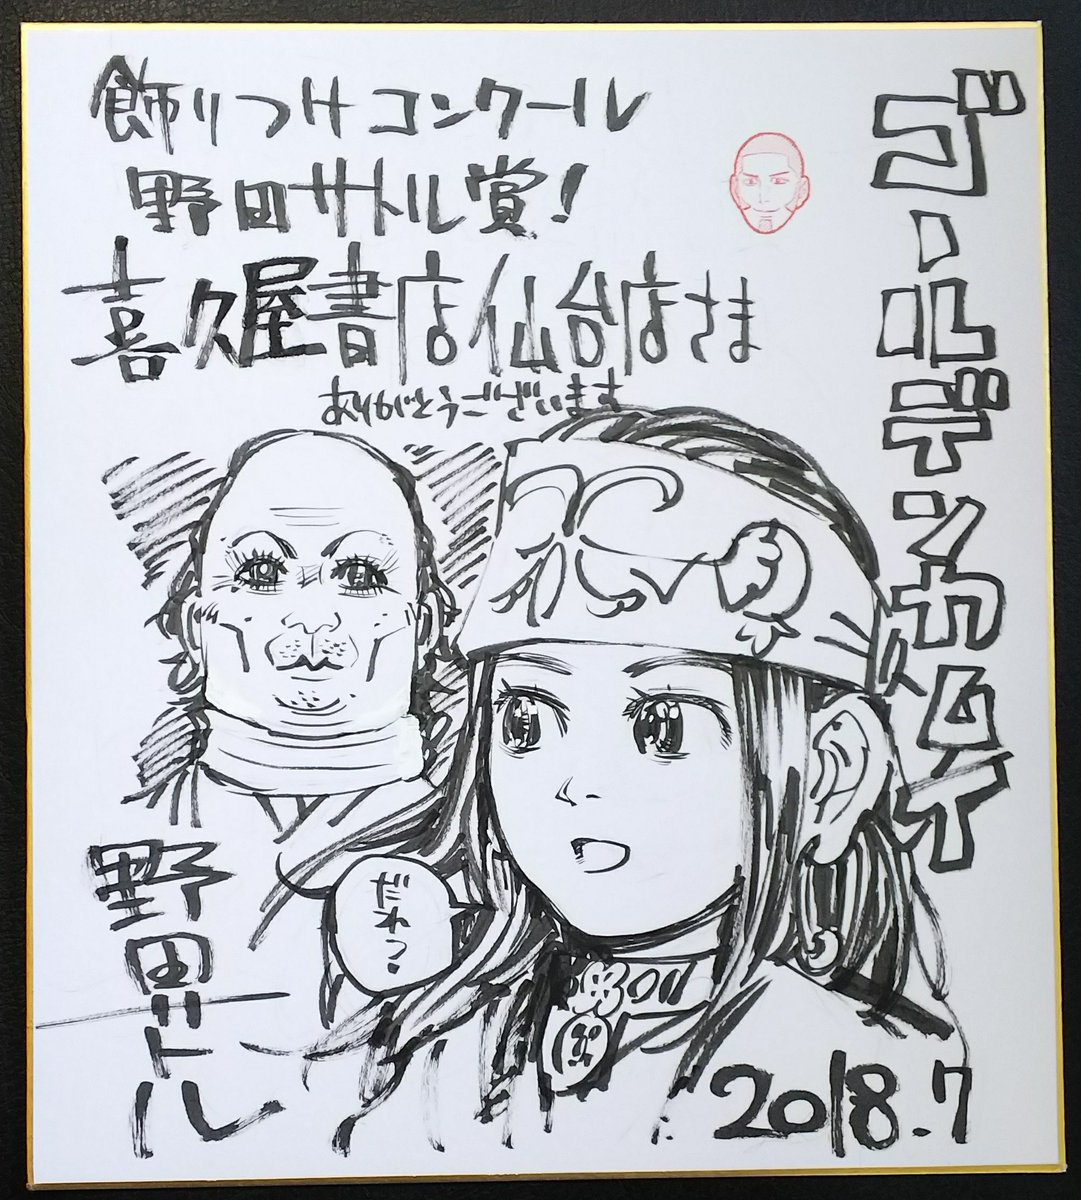 ゴールデンカムイ
飾りつけコンクール
野田サトル賞!
喜久屋書店仙台店さま
ありがとうございます
だれ?
野田サトル
2018.7